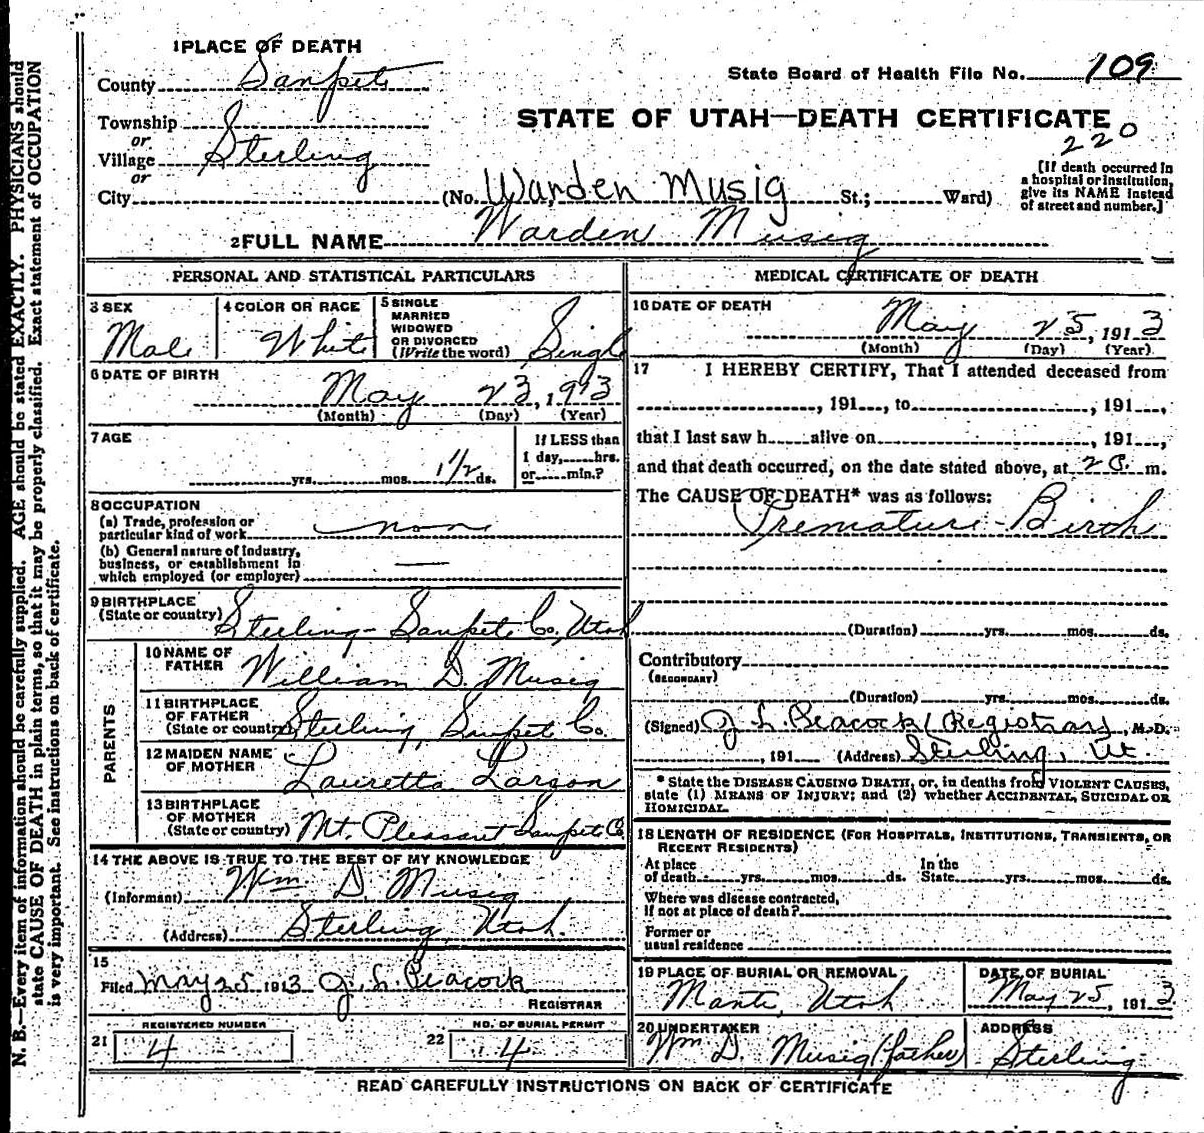 1 PLACE OF DEATH
County Sanpete
State Board of Health File No. 109
Township
or
Village Sterling
or
City
STATE OF UTAH—DEATH CERTIFICATE
220
(No. Warden Musig St.; Ward)
[If death occurred in
a hospital or institution,
give its NAME instead
of street and number.]
2 FULL NAME Warden Musig
PERSONAL AND STATISTICAL PARTICULARS
3 SEX
Male
4 COLOR OR RACE
White
5 SINGLE
MARRIED
WIDOWED
OR DIVORCED
(Write the word) Single
6 DATE OF BIRTH
May 23, 1913
(Month) (Day) (Year)
7 AGE
If LESS than
1 day, hrs.
or min.?
yrs. mos. 1 1/2 ds.
8 OCCUPATION
(a) Trade, profession or
particular kind of work non
(b) General nature of industry,
business, or establishment in
which employed (or employer) —
9 BIRTHPLACE
(State or country) Sterling - Sanpete Co, Utah
PARENTS
10 NAME OF
FATHER William D. Musig
11 BIRTHPLACE
OF FATHER
(State or country) Sterling, Sanpete Co.
12 MAIDEN NAME
OF MOTHER Lauretta Larson
13 BIRTHPLACE
OF MOTHER
(State or country) Mt. Pleasant Sanpete Co
14 THE ABOVE IS TRUE TO THE BEST OF MY KNOWLEDGE
(Informant) Wm D. Musig
(Address) Sterling, Utah.
15
Filed May 25 1913 J. L. Peacock
REGISTRAR
21 REGISTERED NUMBER
4
22 NO. OF BURIAL PERMIT
4
MEDICAL CERTIFICATE OF DEATH
16 DATE OF DEATH
May 25, 1913
(Month) (Day) (Year)
17 I HEREBY CERTIFY, That I attended deceased from
, 191 , to , 191 ,
that I last saw h alive on , 191 ,
and that death occurred, on the date stated above, at m.
The CAUSE OF DEATH* was as follows:
Premature - Birth
(Duration) yrs. mos. ds.
Contributory
(SECONDARY)
(Duration) yrs. mos. ds.
(Signed) J. L. Peacock (Registrar), M.D.
, 191 (Address) Sterling, Ut.
* State the DISEASE CAUSING DEATH, or, in deaths from VIOLENT CAUSES,
state (1) MEANS OF INJURY; and (2) whether ACCIDENTAL, SUICIDAL OR
HOMICIDAL.
18 LENGTH OF RESIDENCE (FOR HOSPITALS, INSTITUTIONS, TRANSIENTS, OR
RECENT RESIDENTS)
At place
of death yrs. mos. ds.
In the
State yrs. mos. ds.
Where was disease contracted,
if not at place of death?
Former or
usual residence
19 PLACE OF BURIAL OR REMOVAL
Manti, Utah
DATE OF BURIAL
May 25, 1913
20 UNDERTAKER
Wm D. Musig (father)
ADDRESS
Sterling
READ CAREFULLY INSTRUCTIONS ON BACK OF CERTIFICATE
N. B.—Every item of information should be carefully supplied. AGE should be stated EXACTLY. PHYSICIANS should
state CAUSE OF DEATH in plain terms, so that it may be properly classified. Exact statement of OCCUPATION
is very important. See instructions on back of certificate.